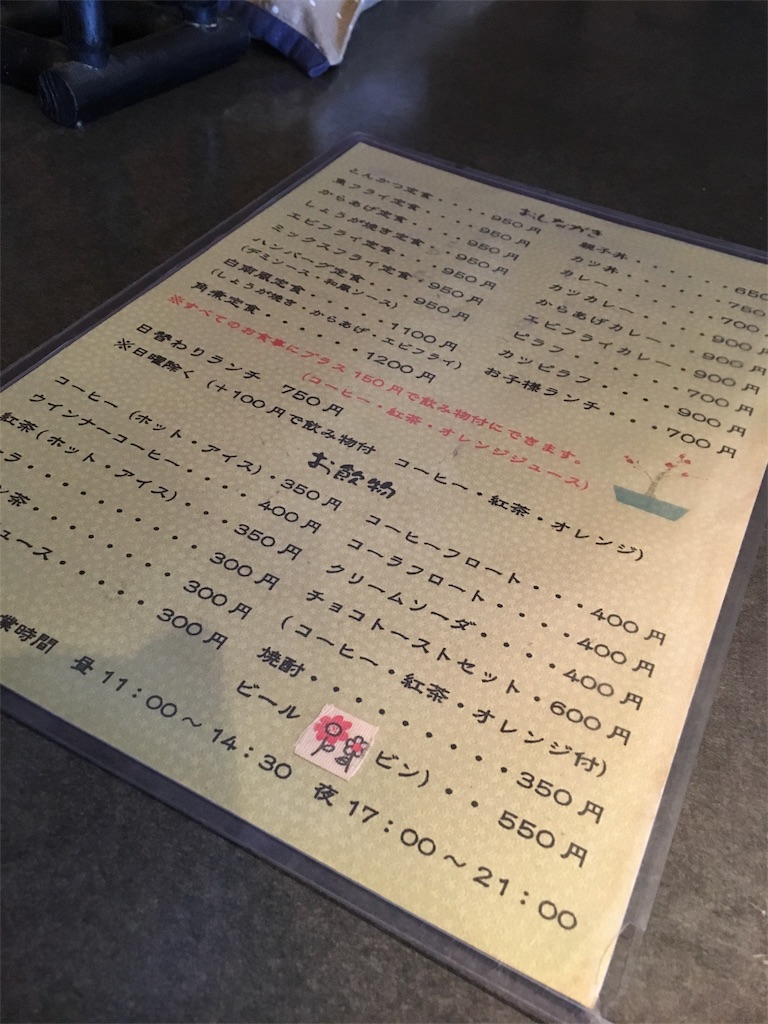 おしながき
とんかつ定食・・・・950円
魚フライ定食・・・・950円
からあげ定食・・・・950円
しょうが焼き定食・・950円
エビフライ定食・・・950円
ミックスフライ定食・950円
ハンバーグ定食・・950円
(デミソース・和風ソース)
白南風定食・・・・・1100円
(しょうが焼き・からあげ・エビフライ)
角煮定食・・・・・・1200円
親子丼・・・・・・650
カツ丼・・・・・・750
カレー・・・・・・700
カツカレー・・・・900円
からあげカレー・・900円
エビフライカレー・900円
ピラフ・・・・・・700円
カツピラフ・・・・900円
お子様ランチ・・・700円
※すべてのお食事にプラス150円で飲み物付にできます。
(コーヒー・紅茶・オレンジジュース)
日替わりランチ 750円
※日曜除く (+100円で飲み物付 コーヒー・紅茶・オレンジ)
お飲物
コーヒー (ホット・アイス)・350円
ウインナーコーヒー・・・・400円
紅茶(ホット・アイス)・・・350円
ラ・・・・・・・・300円
ン茶・・・・・・・300円
ュース・・・・・300円
コーヒーフロート・・・400円
コーラフロート・・・・400円
クリームソーダ・・・・400円
チョコトーストセット・600円
(コーヒー・紅茶・オレンジ付)
焼酎・・・・・・・・350円
ビール ビン)・・550円
業時間 昼11:00～14:30 夜17:00～21:00